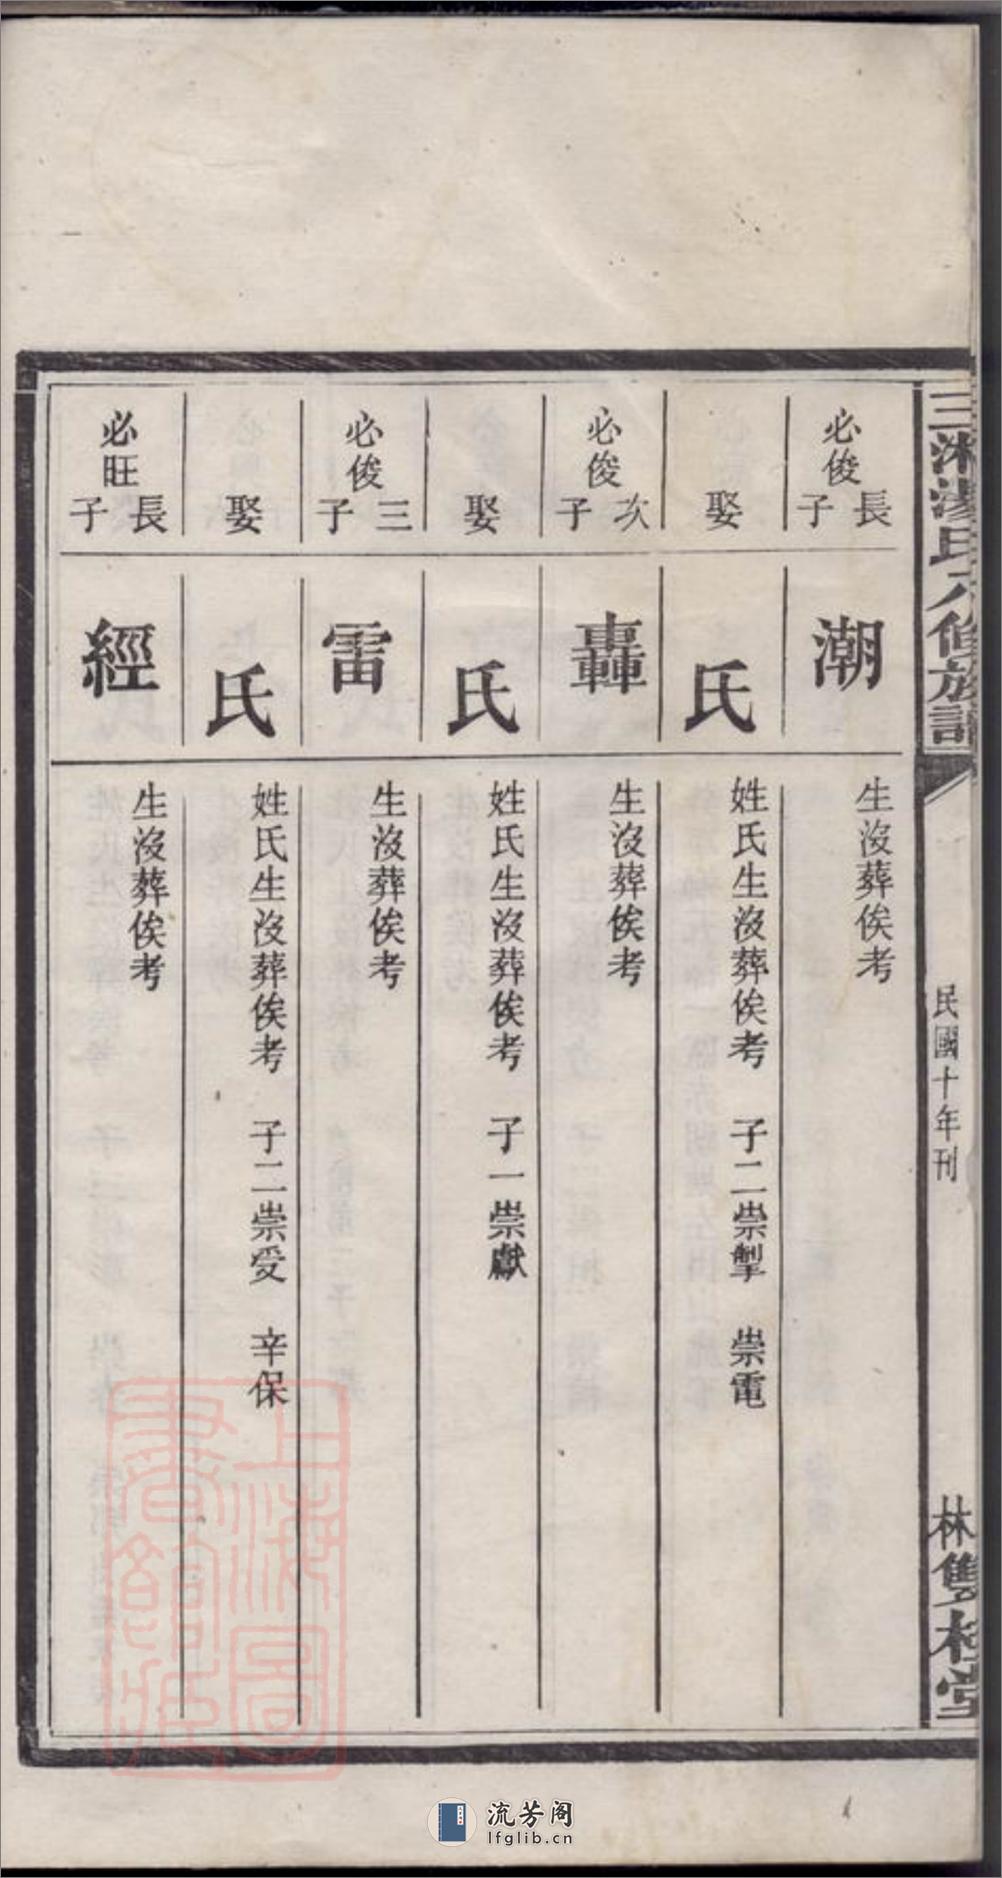 三湘湯氏六修族譜
民國十年刊
林雙桂堂
必俊長子
潮
生沒葬俟考
娶
氏
姓氏生沒葬俟考 子二崇掣 崇電
必俊次子
轟
生沒葬俟考
娶
氏
姓氏生沒葬俟考 子一崇獻
必俊三子
雷
生沒葬俟考
娶
氏
姓氏生沒葬俟考 子二崇受 辛保
必旺長子
經
生沒葬俟考
上海圖書館藏
流芳阁
lfglib.cn